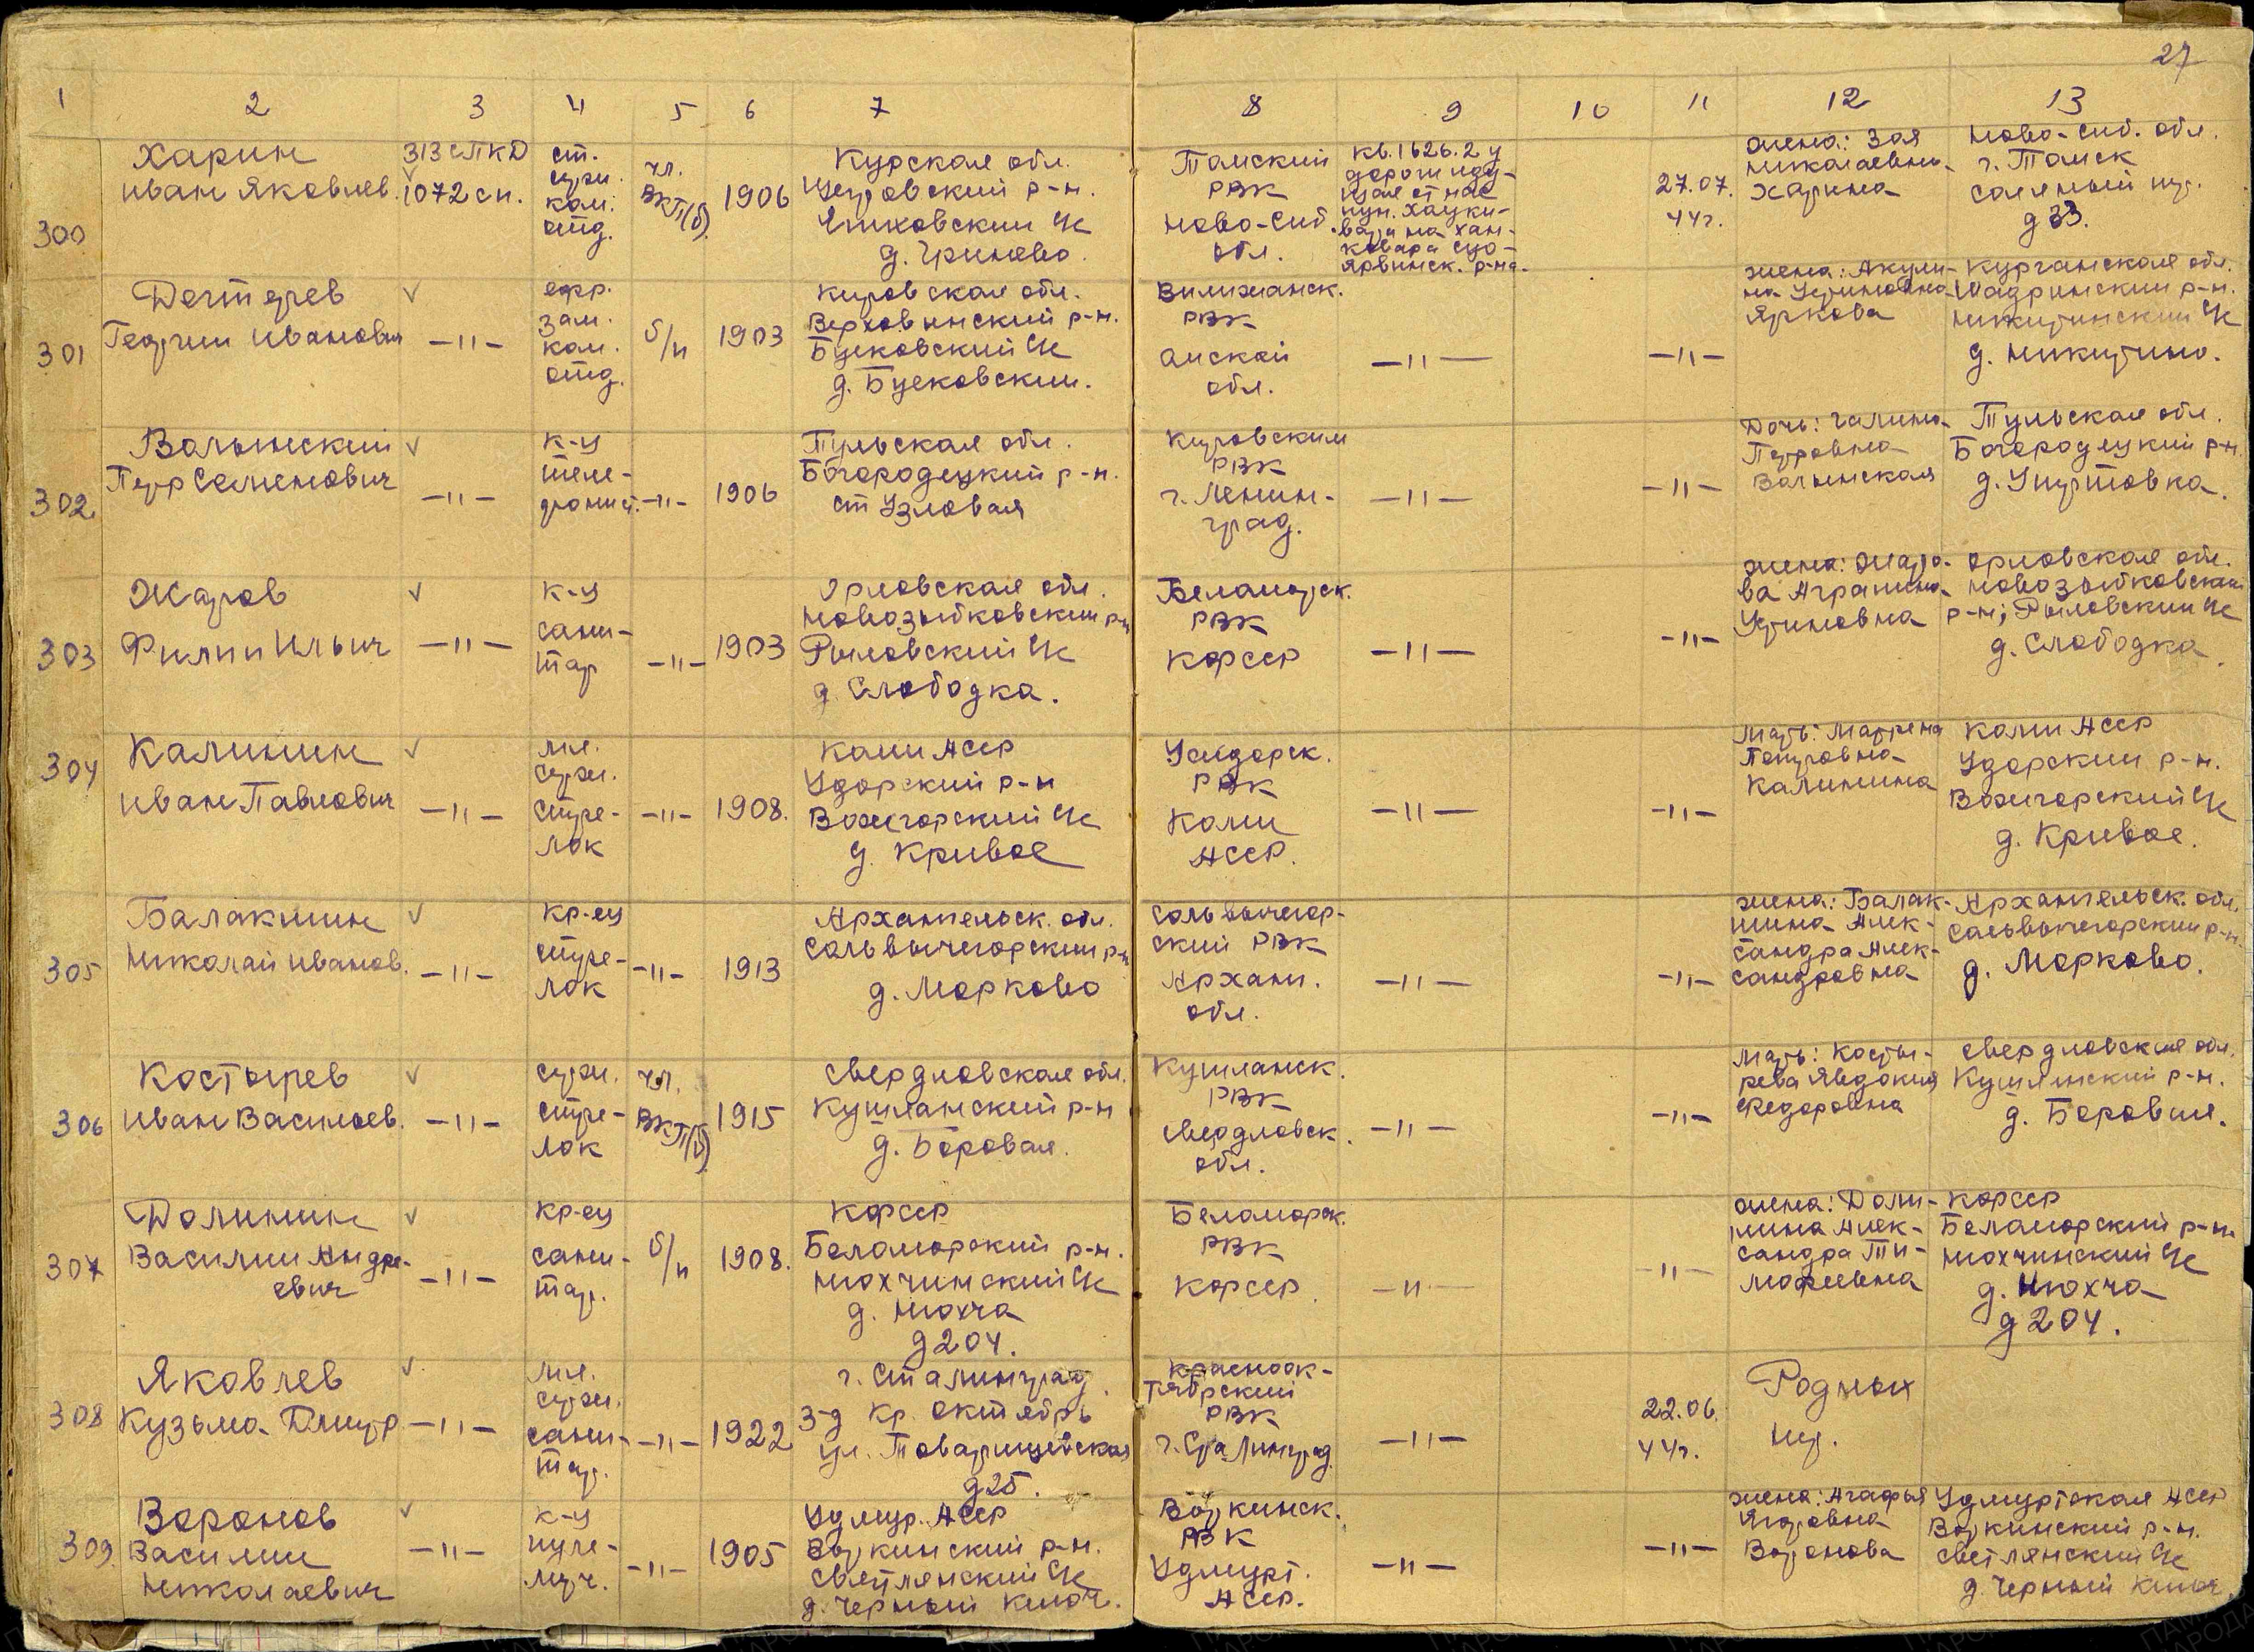 27
1 2 3 4 5 6 7 8 9 10 11 12 13
300
Харин
Иван Яковлев.
313 с П К Д
1072 сп.
ст.
серж.
ком.
отд.
чл.
ВКП(б)
1906
Курская обл.
р-н.
с/с
д. Гринево.
Томский
РВК
Ново-Сиб.
обл.
кв. 1626.2 у
дороги иду-
щая от нас
пун. Хауки-
ваара на Хан-
каваара Суо-
ярвинск. р-на.
27.07.
44г.
жена: Зоя
Николаевна
Харина
Ново-Сиб. обл.
г. Томск
Соляный пер.
д 33.
301
Дегтерев
Георгий Иванович
–"–
ефр.
зам.
ком.
отд.
б/п
1903
Кировская обл.
Верховинский р-н.
с/с
РВК
Омской
обл.
–"–
–"–
жена: Акули-
на Устиновна
Яркова
Курганская обл.
Шадринский р-н.
Никитинский с/с
д. Никитино.
302
Волынский
Петр Семенович
–"–
к-ц
теле-
фонист.
–"–
1906
Тульская обл.
Богородецкий р-н.
ст Узловая
Кировский
РВК
г. Ленин-
град.
–"–
–"–
Дочь: Галина
Петровна
Волынская
Тульская обл.
Богородецкий р-н.
д.
303
Жаров
Филип Ильич
–"–
к-ц
сани-
тар
–"–
1903
Орловская обл.
Новозыбковский р-н
Рыловский с/с
д. Слободка.
Беломорск.
РВК
КФССР
–"–
–"–
жена: Жаро-
ва Аграпина
Устиновна
Орловская обл.
Новозыбковский
р-н; Рыловский с/с
д. Слободка.
304
Калинин
Иван Павлович
–"–
мл.
серж.
стре-
лок
–"–
1908.
Коми АССР
Удорский р-н
Вожгорский с/с
д. Кривое
РВК
Коми
АССР.
–"–
–"–
Мать: Матрена
Петровна
Калинина
Коми АССР
Удорский р-н.
Вожгорский с/с
д. Кривое.
305
Балакшин
Николай Иванов.
–"–
кр-ец
стре-
лок
–"–
1913
Архангельск. обл.
Сольвычегорский р-н
д. Морково
Сольвычегор-
ский РВК
Архани.
обл.
–"–
–"–
жена: Балак-
шина Алек-
сандра Алек-
сандровна
Архангельск. обл.
Сольвычегорский р-н.
д. Морково.
306
Костырев
Иван Васильев.
–"–
серж.
стре-
лок
чл.
ВКП(б)
1915
Свердловская обл.
р-н
д. Боровая.
РВК
Свердловск.
обл.
–"–
–"–
Мать: Косты-
рева Явдокия
Федоровна
Свердловская обл.
р-н.
д. Боровая.
307
Долинин
Василий Андре-
евич
–"–
кр-ец
сани-
тар.
б/п
1908.
КФССР
Беломорский р-н.
Нюхчинский с/с
д. Нюхча
д 204.
Беломорск.
РВК
КФССР.
–"–
–"–
жена: Доли-
нина Алек-
сандра Ти-
мофеевна
КФССР
Беломорский р-н.
Нюхчинский с/с
д. Нюхча
д 204.
308
Яковлев
Кузьма Дмитр
–"–
мл.
серж.
сани-
тар.
–"–
1922
г. Сталинград.
З-д Кр. Октябрь
ул. Товарищевская
д 25.
Красноок-
тябрский
РВК
г. Сталинград
–"–
22.06.
44г.
Родных
нет.
309.
Воронов
Василий
Николаевич
–"–
к-ц
пуле-
мет.
–"–
1905
Удмур. АССР
Воткинский р-н.
Светлянский с/с
д. Черный Ключ.
Воткинск.
РВК
Удмурт.
АССР.
–"–
–"–
жена: Агафья
Ягоровна
Воронова
Удмуртская АССР
Воткинский р-н.
Светлянский с/с
д. Черный Ключ.